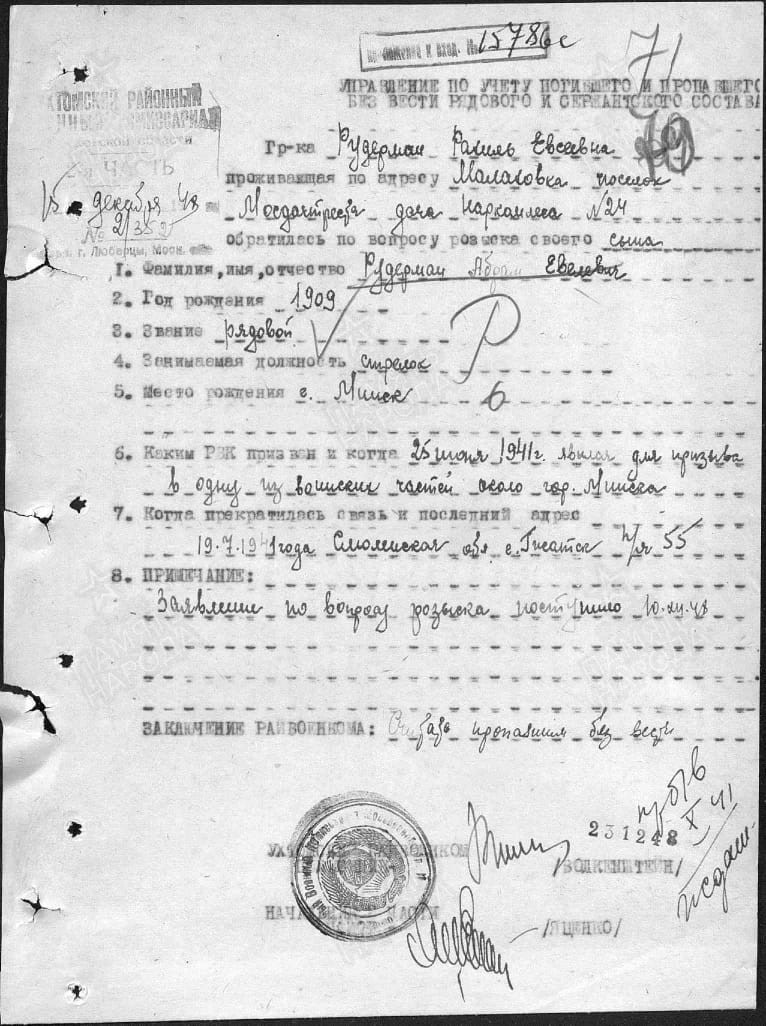 15786с
71
УПРАВЛЕНИЕ ПО УЧЕТУ ПОГИБШЕГО И ПРОПАВШЕГО
БЕЗ ВЕСТИ РЯДОВОГО И СЕРЖАНТСКОГО СОСТАВА
РАЙОННЫЙ
ЧАСТЬ
15 декабря 48
г. Люберцы, Моск.
Гр-ка Рудерман Рахиль Евсеевна
проживающая по адресу Малаховка поселок
Мосдачтреста дача Наркомлеса №24
обратилась по вопросу розыска своего сына
1. Фамилия, имя, отчество Рудерман Абрам
2. Год рождения 1909
3. Звание рядовой
4. Занимаемая должность стрелок
5. Место рождения г. Минск
6. Каким РВК призван и когда 25 июня 1941г. явился для призыва
в одну из воинских частей около гор. Минска
7. Когда прекратилась связь и последний адрес
19.7.1941 года Смоленская обл г. Гжатск п/я 55
8. ПРИМЕЧАНИЕ:
Заявление по вопросу розыска поступило 10.XII.48
ЗАКЛЮЧЕНИЕ РАЙВОЕНКОМА: Считать пропавшим без вести
231248
/ВОЛКЕНШТЕЙН/
/ЯЩЕНКО/